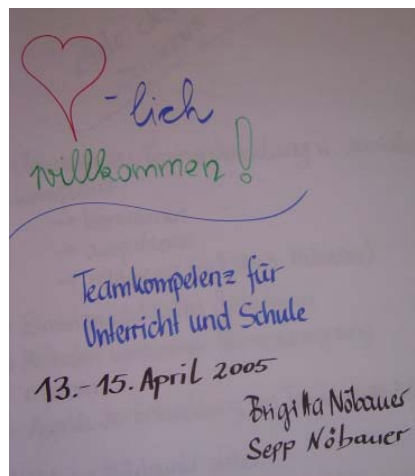 -lich
willkommen!
Teamkompetenz für
Unterricht und Schule
13.-15. April 2005
Brigitta Nöbauer
Sepp Nöbauer